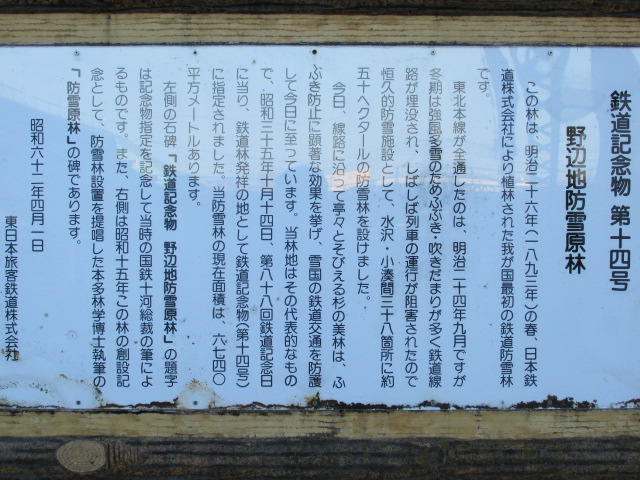 鉄道記念物 第十四号
野辺地防雪原林
この林は、明治二十六年(一八九三年)の春、日本鉄
道株式会社により植林された我が国最初の鉄道防雪林
です。
東北本線が全通したのは、明治二十四年九月ですが
冬期は強風多雪のためふぶき・吹きだまりが多く鉄道線
路が埋没され、しばしば列車の運行が阻害されたので
恒久的防雪施設として、水沢・小湊間三十八箇所に約
五十ヘクタールの防雪林を設けました。
今日、線路に沿って亭々とそびえる杉の美林は、ふ
ぶき防止に顕著な効果を挙げ、雪国の鉄道交通を防護
して今日に至っています。当林地はその代表的なもの
で、昭和三十五年十月十四日、第八十八回鉄道記念日
に当り、鉄道林発祥の地として鉄道記念物(第十四号)
に指定されました。当防雪林の現在面積は、六七四〇
平方メートルあります。
左側の石碑「鉄道記念物 野辺地防雪原林」の題字
は記念物指定を記念して当時の国鉄十河総裁の筆によ
るものです。また、右側は昭和十五年この林の創設記
念として、防雪林設置を提唱した本多林学博士執筆の
「防雪原林」の碑であります。
昭和六十二年四月一日
東日本旅客鉄道株式会社